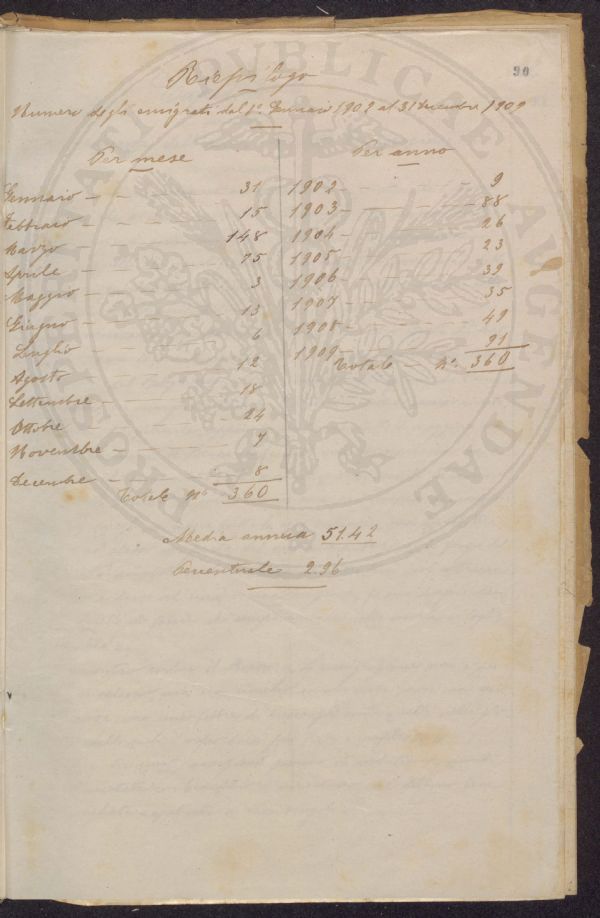 90
Riepilogo
Numero degli emigrati dal 1º Gennaio 1902 al 31 dicembre 1909
Per mese
Gennaio — — — 31
Febbraio — — — 15
Marzo — — — 148
Aprile — — — 75
Maggio — — — 3
Giugno — — — 13
Luglio — — — 6
Agosto — — — 12
Settembre — — — 18
Ottobre — — — 24
Novembre — — — 7
Decembre — — — 8
Totale Nº 360
Per anno
1902 — — — 9
1903 — — — 88
1904 — — — 26
1905 — — — 23
1906 — — — 39
1907 — — — 35
1908 — — — 49
1909 — — — 91
Totale — Nº 360
Media annua 51.42
Percentuale 2.96
PROSPERITATI PUBLICAE AUGENDAE